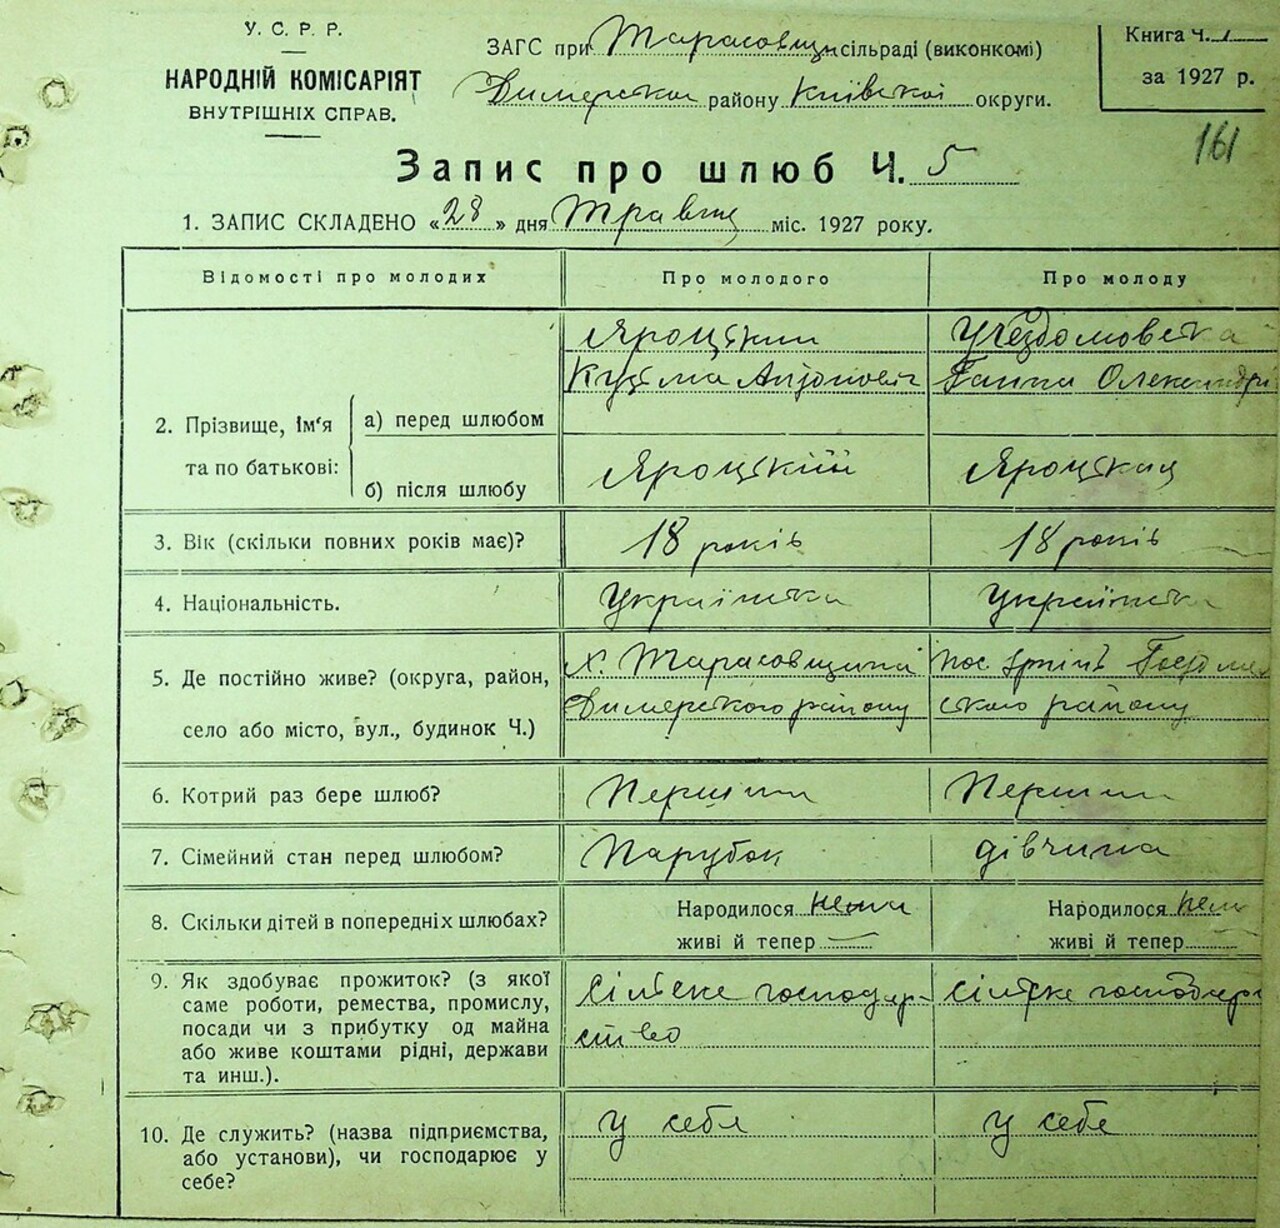 У. С. Р. Р.
НАРОДНІЙ КОМІСАРІЯТ
ВНУТРІШНІХ СПРАВ.
ЗАГС при Тарасовщин сільраді (виконкомі)
Димерском району Київської округи.
Книга Ч. 1
за 1927 р.
161
Запис про шлюб Ч. 5
1. ЗАПИС СКЛАДЕНО «28» дня Травня міс. 1927 року.
Відомості про молодих
Про молодого
Про молоду
2. Прізвище, Ім'я та по батькові:
а) перед шлюбом
Яроцький
Кузьма Антонович
Ганна Олександрі
б) після шлюбу
Яроцкій
Яроцкая
3. Вік (скільки повних років має)?
18 років
18 років
4. Національність.
Українська
Українська
5. Де постійно живе? (округа, район,
село або місто, вул., будинок Ч.)
х. Тарасовщина
Димерського району
пос.
ського району
6. Котрий раз бере шлюб?
Перший
Перший
7. Сімейний стан перед шлюбом?
Парубок
дівчина
8. Скільки дітей в попередніх шлюбах?
Народилося нема
живі й тепер —
Народилося нем
живі й тепер —
9. Як здобуває прожиток? (з якої
саме роботи, ремества, промислу,
посади чи з прибутку од майна
або живе коштами рідні, держави
та инш.).
Сільске господар-
ство
Сільске господар
10. Де служить? (назва підприємства,
або установи), чи господарює у
себе?
У себя
У себе